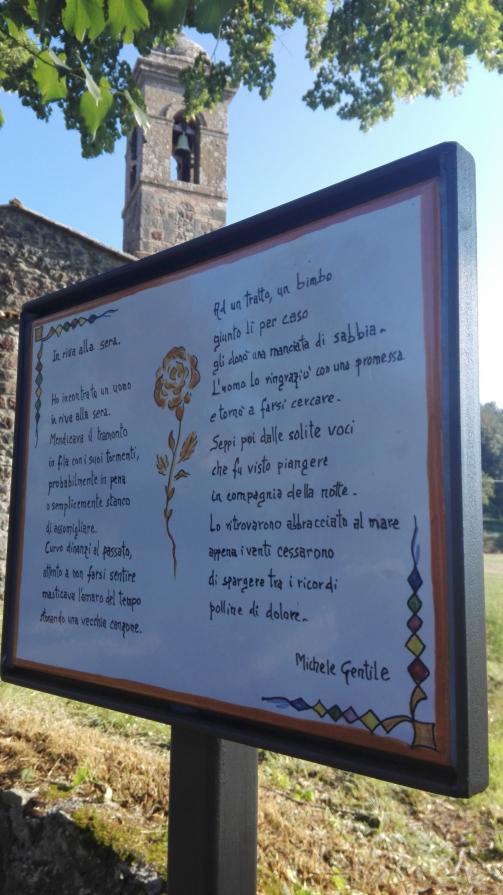 In riva alla sera.
Ho incontrato un uomo
in riva alla sera.
Mendicava il tramonto
in fila con i suoi tormenti,
probabilmente in pena
o semplicemente stanco
di assomigliare.
Curvo dinanzi al passato,
attento a non farsi sentire
masticava l'amaro del tempo
stonando una vecchia canzone.
Ad un tratto, un bimbo
giunto lì per caso
gli donò una manciata di sabbia.
L'uomo lo ringraziò con una promessa
e tornò a farsi cercare.
Seppi poi dalle solite voci
che fu visto piangere
in compagnia della notte.
Lo ritrovarono abbracciato al mare
appena i venti cessarono
di spargere tra i ricordi
polline di dolore.
Michele Gentile